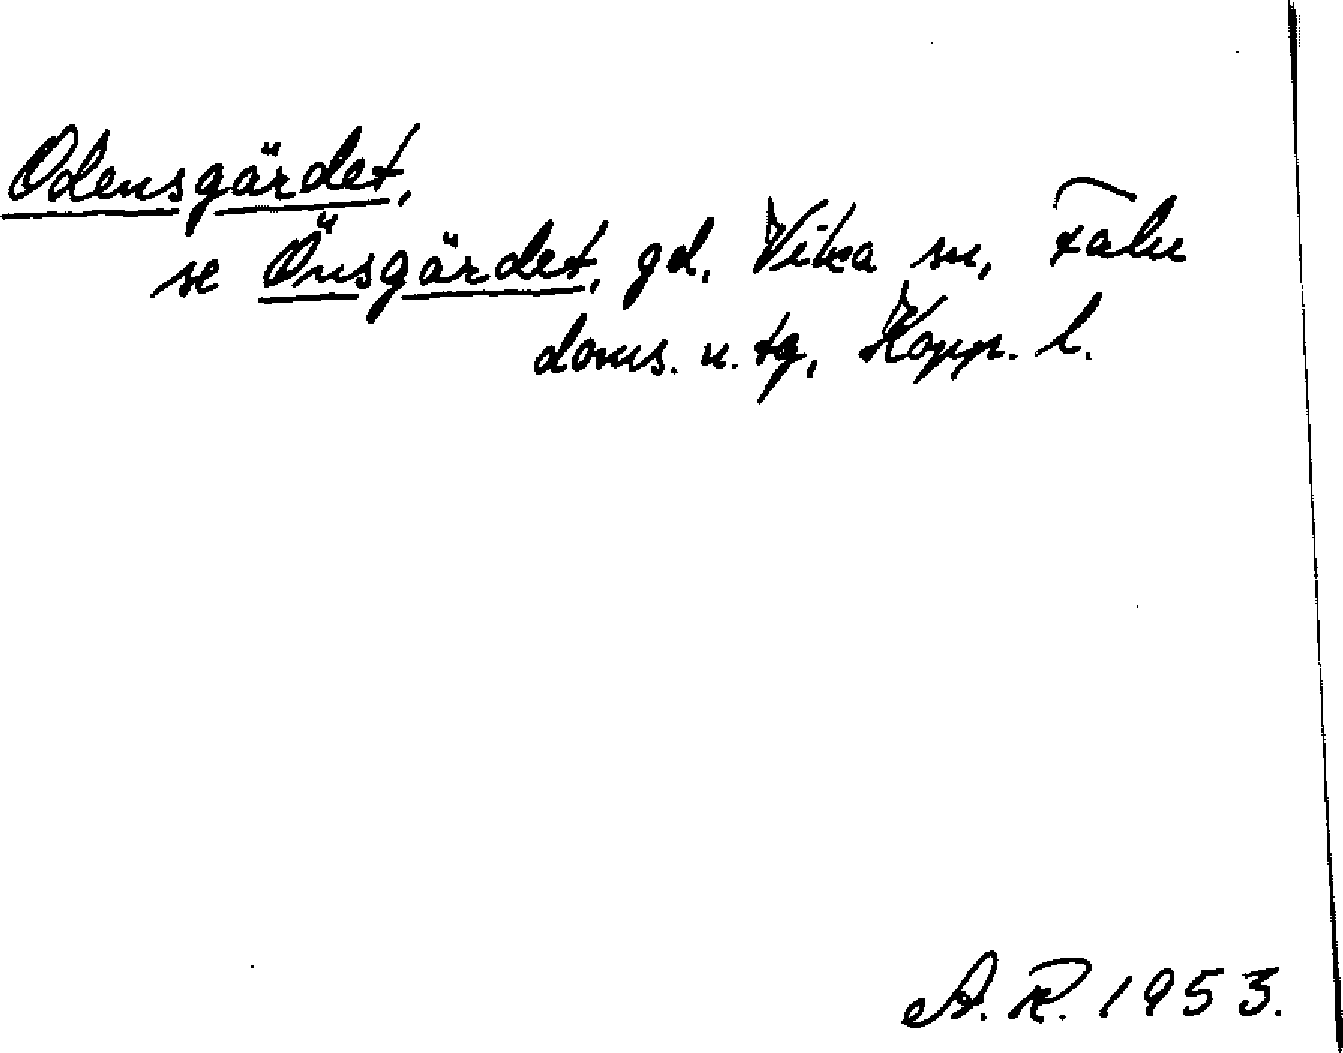 Odensgärdet,
se Önsgärdet, gd, Vika sn, Falu
doms. n. tg, Kopp. l.
A. R. 1953.